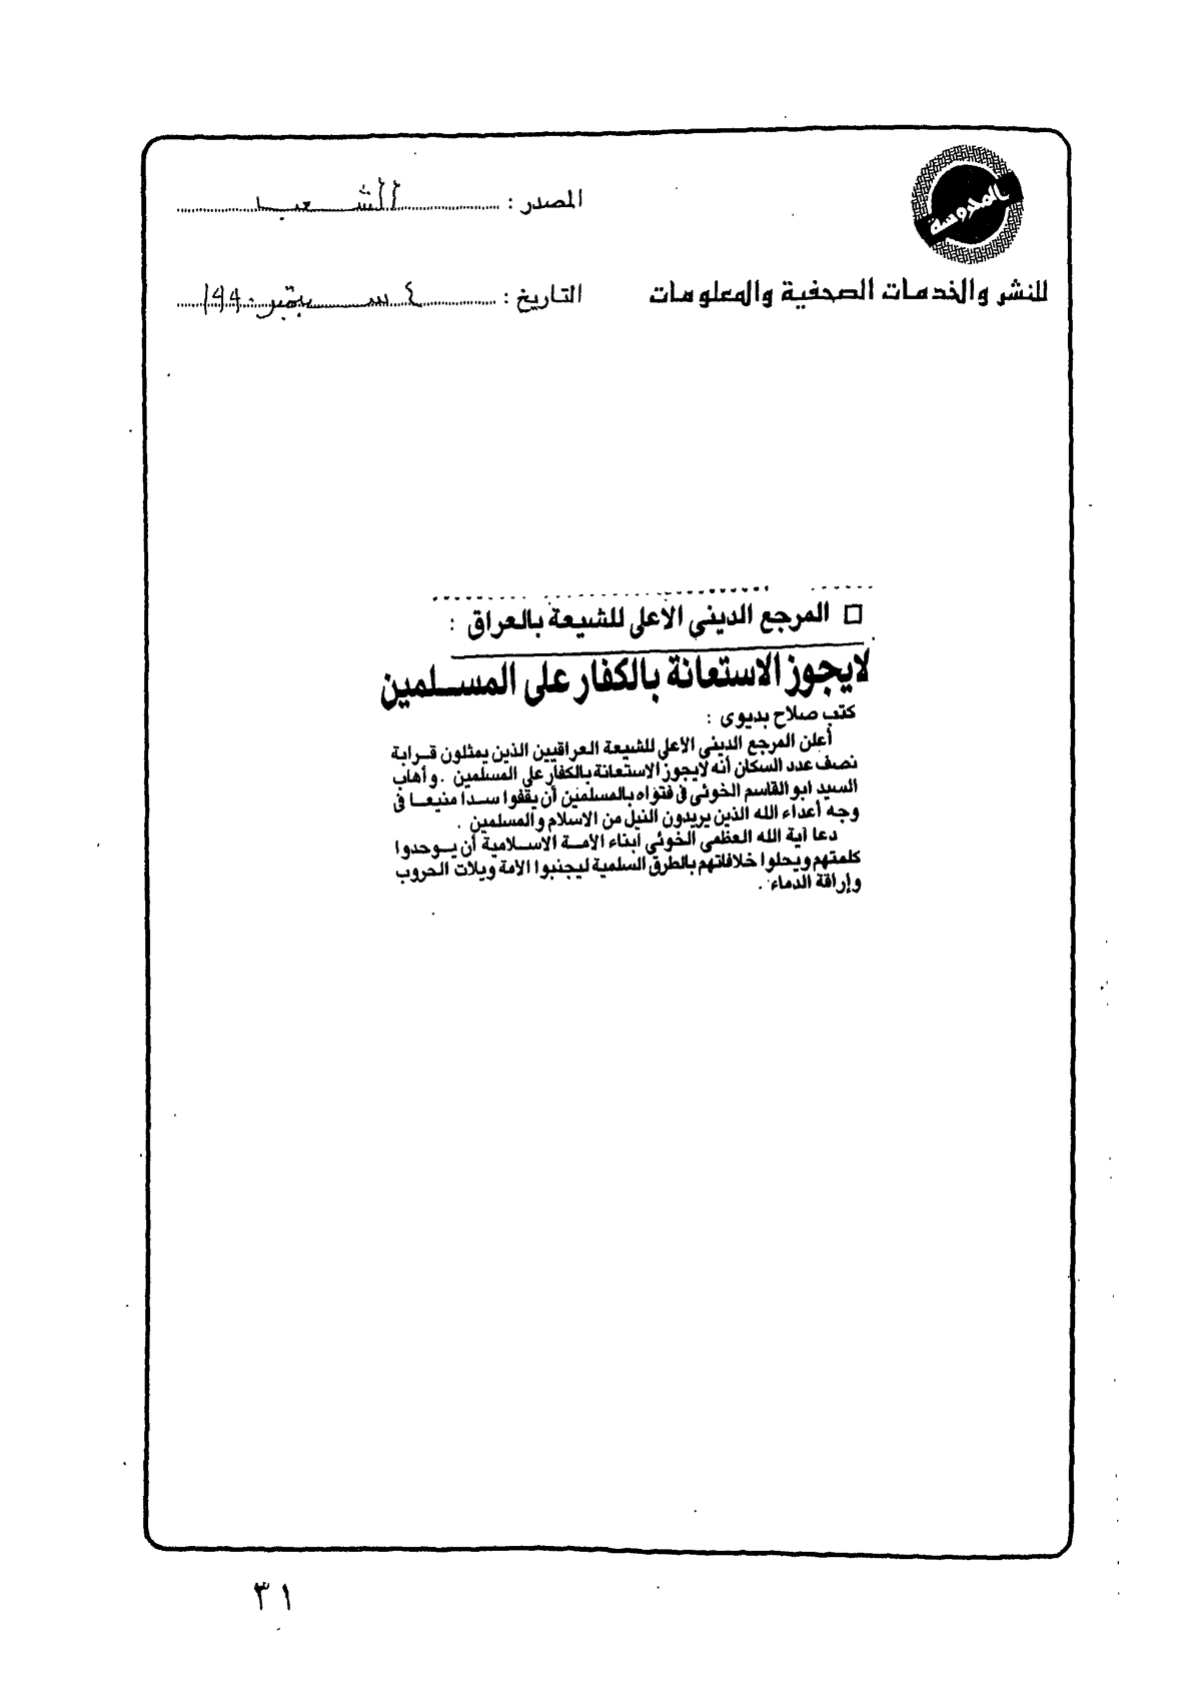 بالمحروسة
للنشر والخدمات الصحفية والمعلومات
المصدر : الشعب
التاريخ : ٤ سبتمبر ١٩٩٠
□ المرجع الديني الأعلى للشيعة بالعراق :
لايجوز الاستعانة بالكفار على المسـلمين
كتب صلاح بديوى :
أعلن المرجع الديني الأعلى للشيعة العراقيين الذين يمثلون قرابة
نصف عدد السكان أنه لايجوز الاستعانة بالكفار على المسلمين . وأهاب
السيد ابو القاسم الخوئى فى فتواه بالمسلمين أن يقفوا سدا منيعا فى
وجه أعداء الله الذين يريدون النيل من الاسلام والمسلمين .
دعا آية الله العظمى الخوئي أبناء الأمة الاسلامية أن يوحدوا
كلمتهم ويحلوا خلافاتهم بالطرق السلمية ليجنبوا الأمة ويلات الحروب
وإراقة الدماء .
٣١